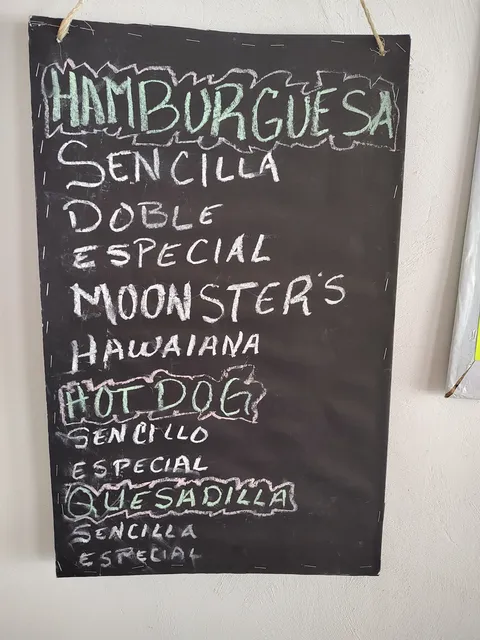 HAMBURGUESA
SENCILLA
DOBLE
ESPECIAL
MOONSTER'S
HAWAIANA
HOT DOG
SENCILLO
ESPECIAL
QUESADILLA
SENCILLA
ESPECIAL